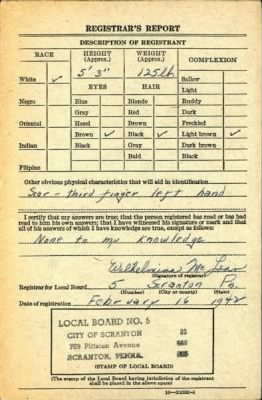 REGISTRAR'S REPORT
DESCRIPTION OF REGISTRANT
RACE HEIGHT (Approx.) WEIGHT (Approx.) COMPLEXION
5' 3" 125 lb.
White ✓ Sallow
EYES HAIR Light
Negro Blue Blonde Ruddy
Gray Red Dark
Oriental Hazel Brown Freckled
Brown ✓ Black ✓ Light brown ✓
Indian Black Gray Dark brown
Bald Black
Filipino
Other obvious physical characteristics that will aid in identification
Scar - third finger left hand
I certify that my answers are true; that the person registered has read or has had
read to him his own answers; that I have witnessed his signature or mark and that
all of his answers of which I have knowledge are true, except as follows:
None to my knowledge
Wilhelmina Mc Lean
(Signature of registrar)
Registrar for Local Board 5 Scranton Pa.
(Number) (City or county) (State)
Date of registration February 16 1942
LOCAL BOARD NO. 5
CITY OF SCRANTON
709 Pittston Avenue
SCRANTON, PENNA.
(STAMP OF LOCAL BOARD)
(The stamp of the Local Board having jurisdiction of the registrant
shall be placed in the above space)